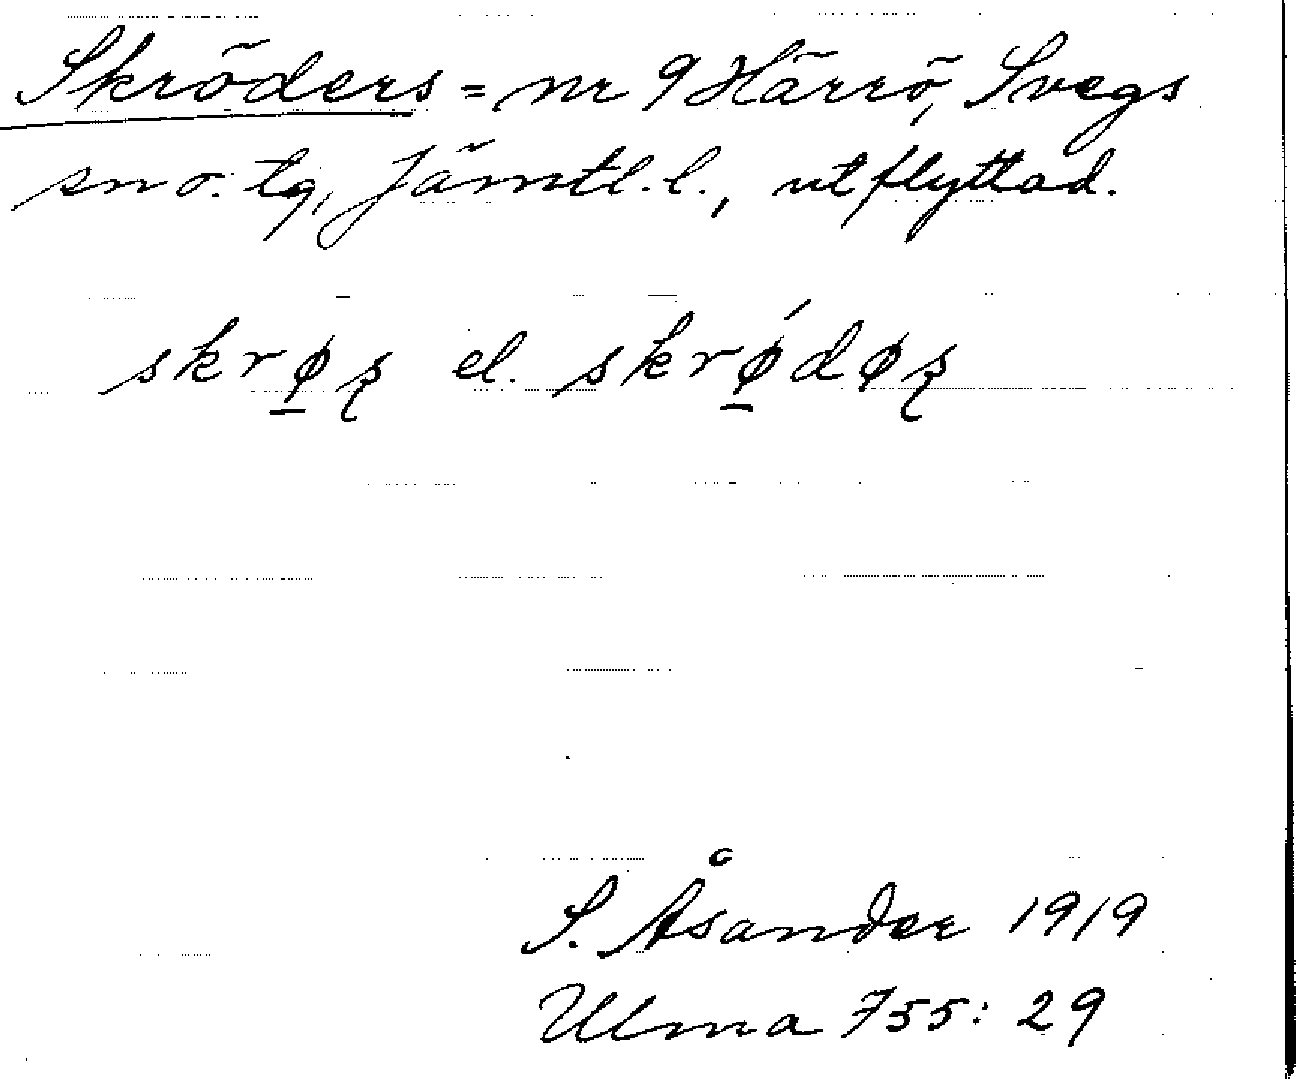 Skröders = nr 9 Härrö, Svegs
sn o. tg, Jämtl. l., utflyttad.
skrø̱ʂ el. skrǿ̱døʂ
S. Åsander 1919
Ulma 755: 29